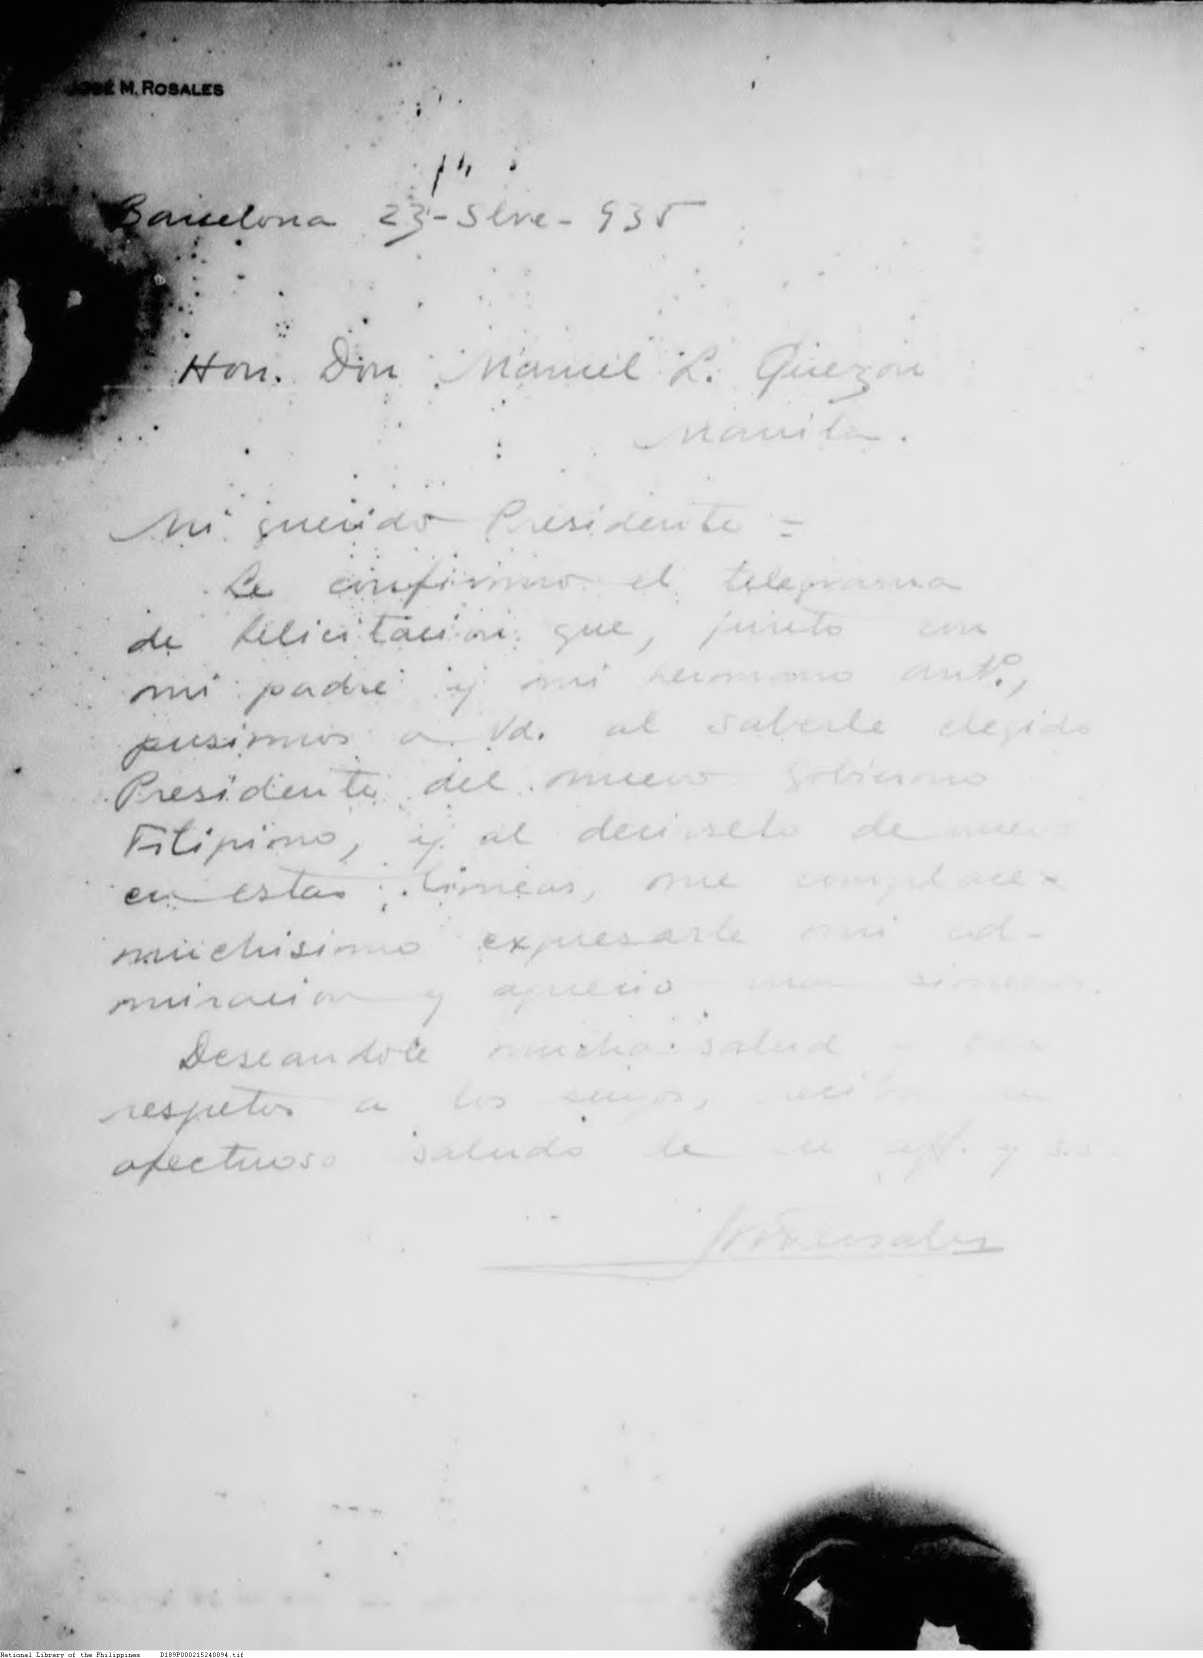 JOSÉ M. ROSALES
Barcelona 23 - Sbre - 935
Hon. Don Manuel L. Quezon
Manila.
Mi querido Presidente =
Le confirmo el telegrama
de felicitacion que, junto con
mi padre y mi hermano Antº,
pusimos a Vd. al saberle elegido
Presidente del nuevo gobierno
Filipino, y al decirselo de nuevo
en estas lineas, me complace
muchisimo expresarle mi ad-
miracion y aprecio mas sinceros.
Deseandole mucha salud y con
respetos a los suyos, reciba un
afectuoso saludo de su aff. y s.s.
National Library of the Philippines D189P000215240894.tif